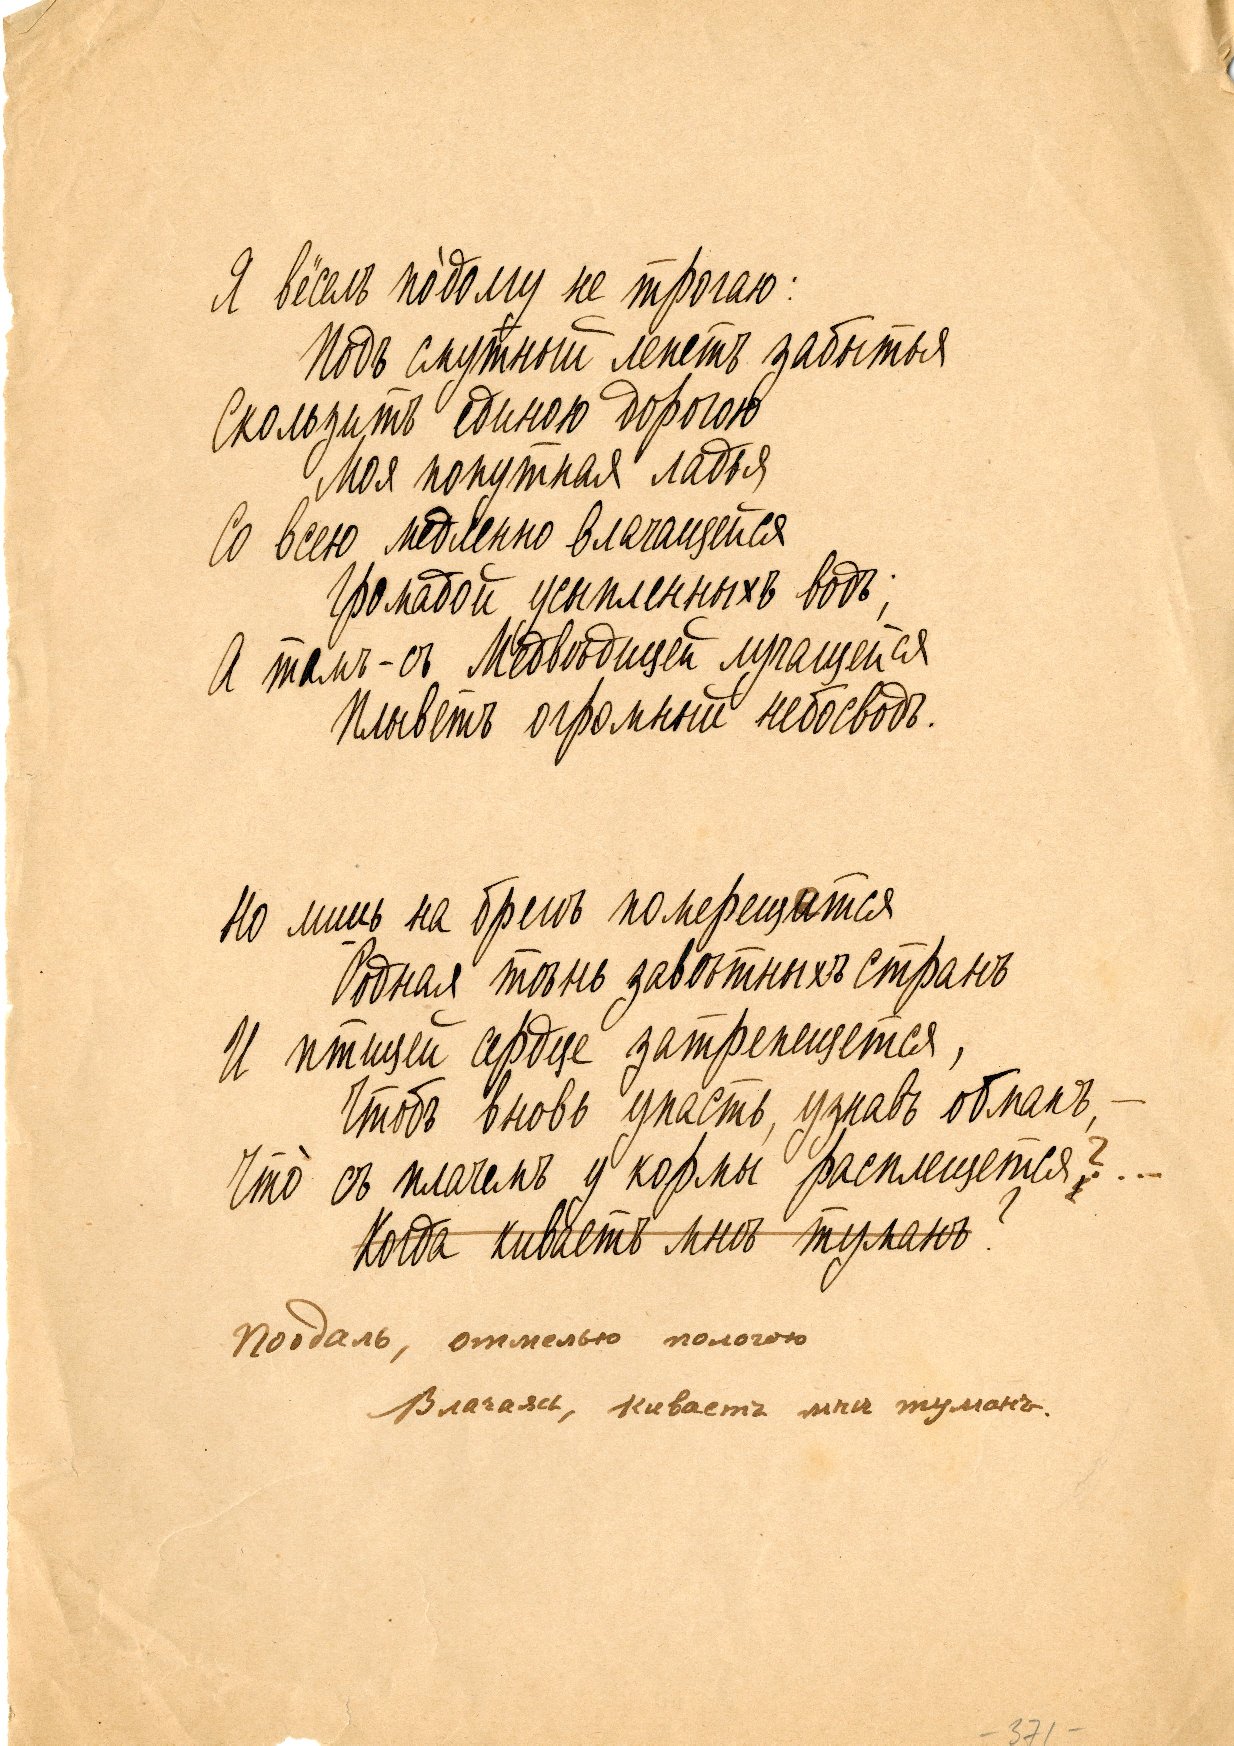 Я вёселъ по́долгу не трогаю:
Подъ смутный лепетъ забытья
Скользитъ единою дорогою
Моя попутная ладья
Со всею медленно влачащейся
Громадой усыпленныхъ водъ;
А тамъ - съ Медвѣдицей лучащейся
Плыветъ огромный небосводъ.
Но лишь на брегѣ померещатся
Родная тѣнь завѣтныхъ странъ
И птицей сердце затрепещется,
Чтобъ вновь упасть, узнавъ обманъ, —
Что̀ съ плачемъ у кормы расплещется?...
Когда киваетъ мнѣ туманъ?
Поодаль, отмелью пологою
Влачаясь, киваетъ мнѣ туманъ.
- 371 -